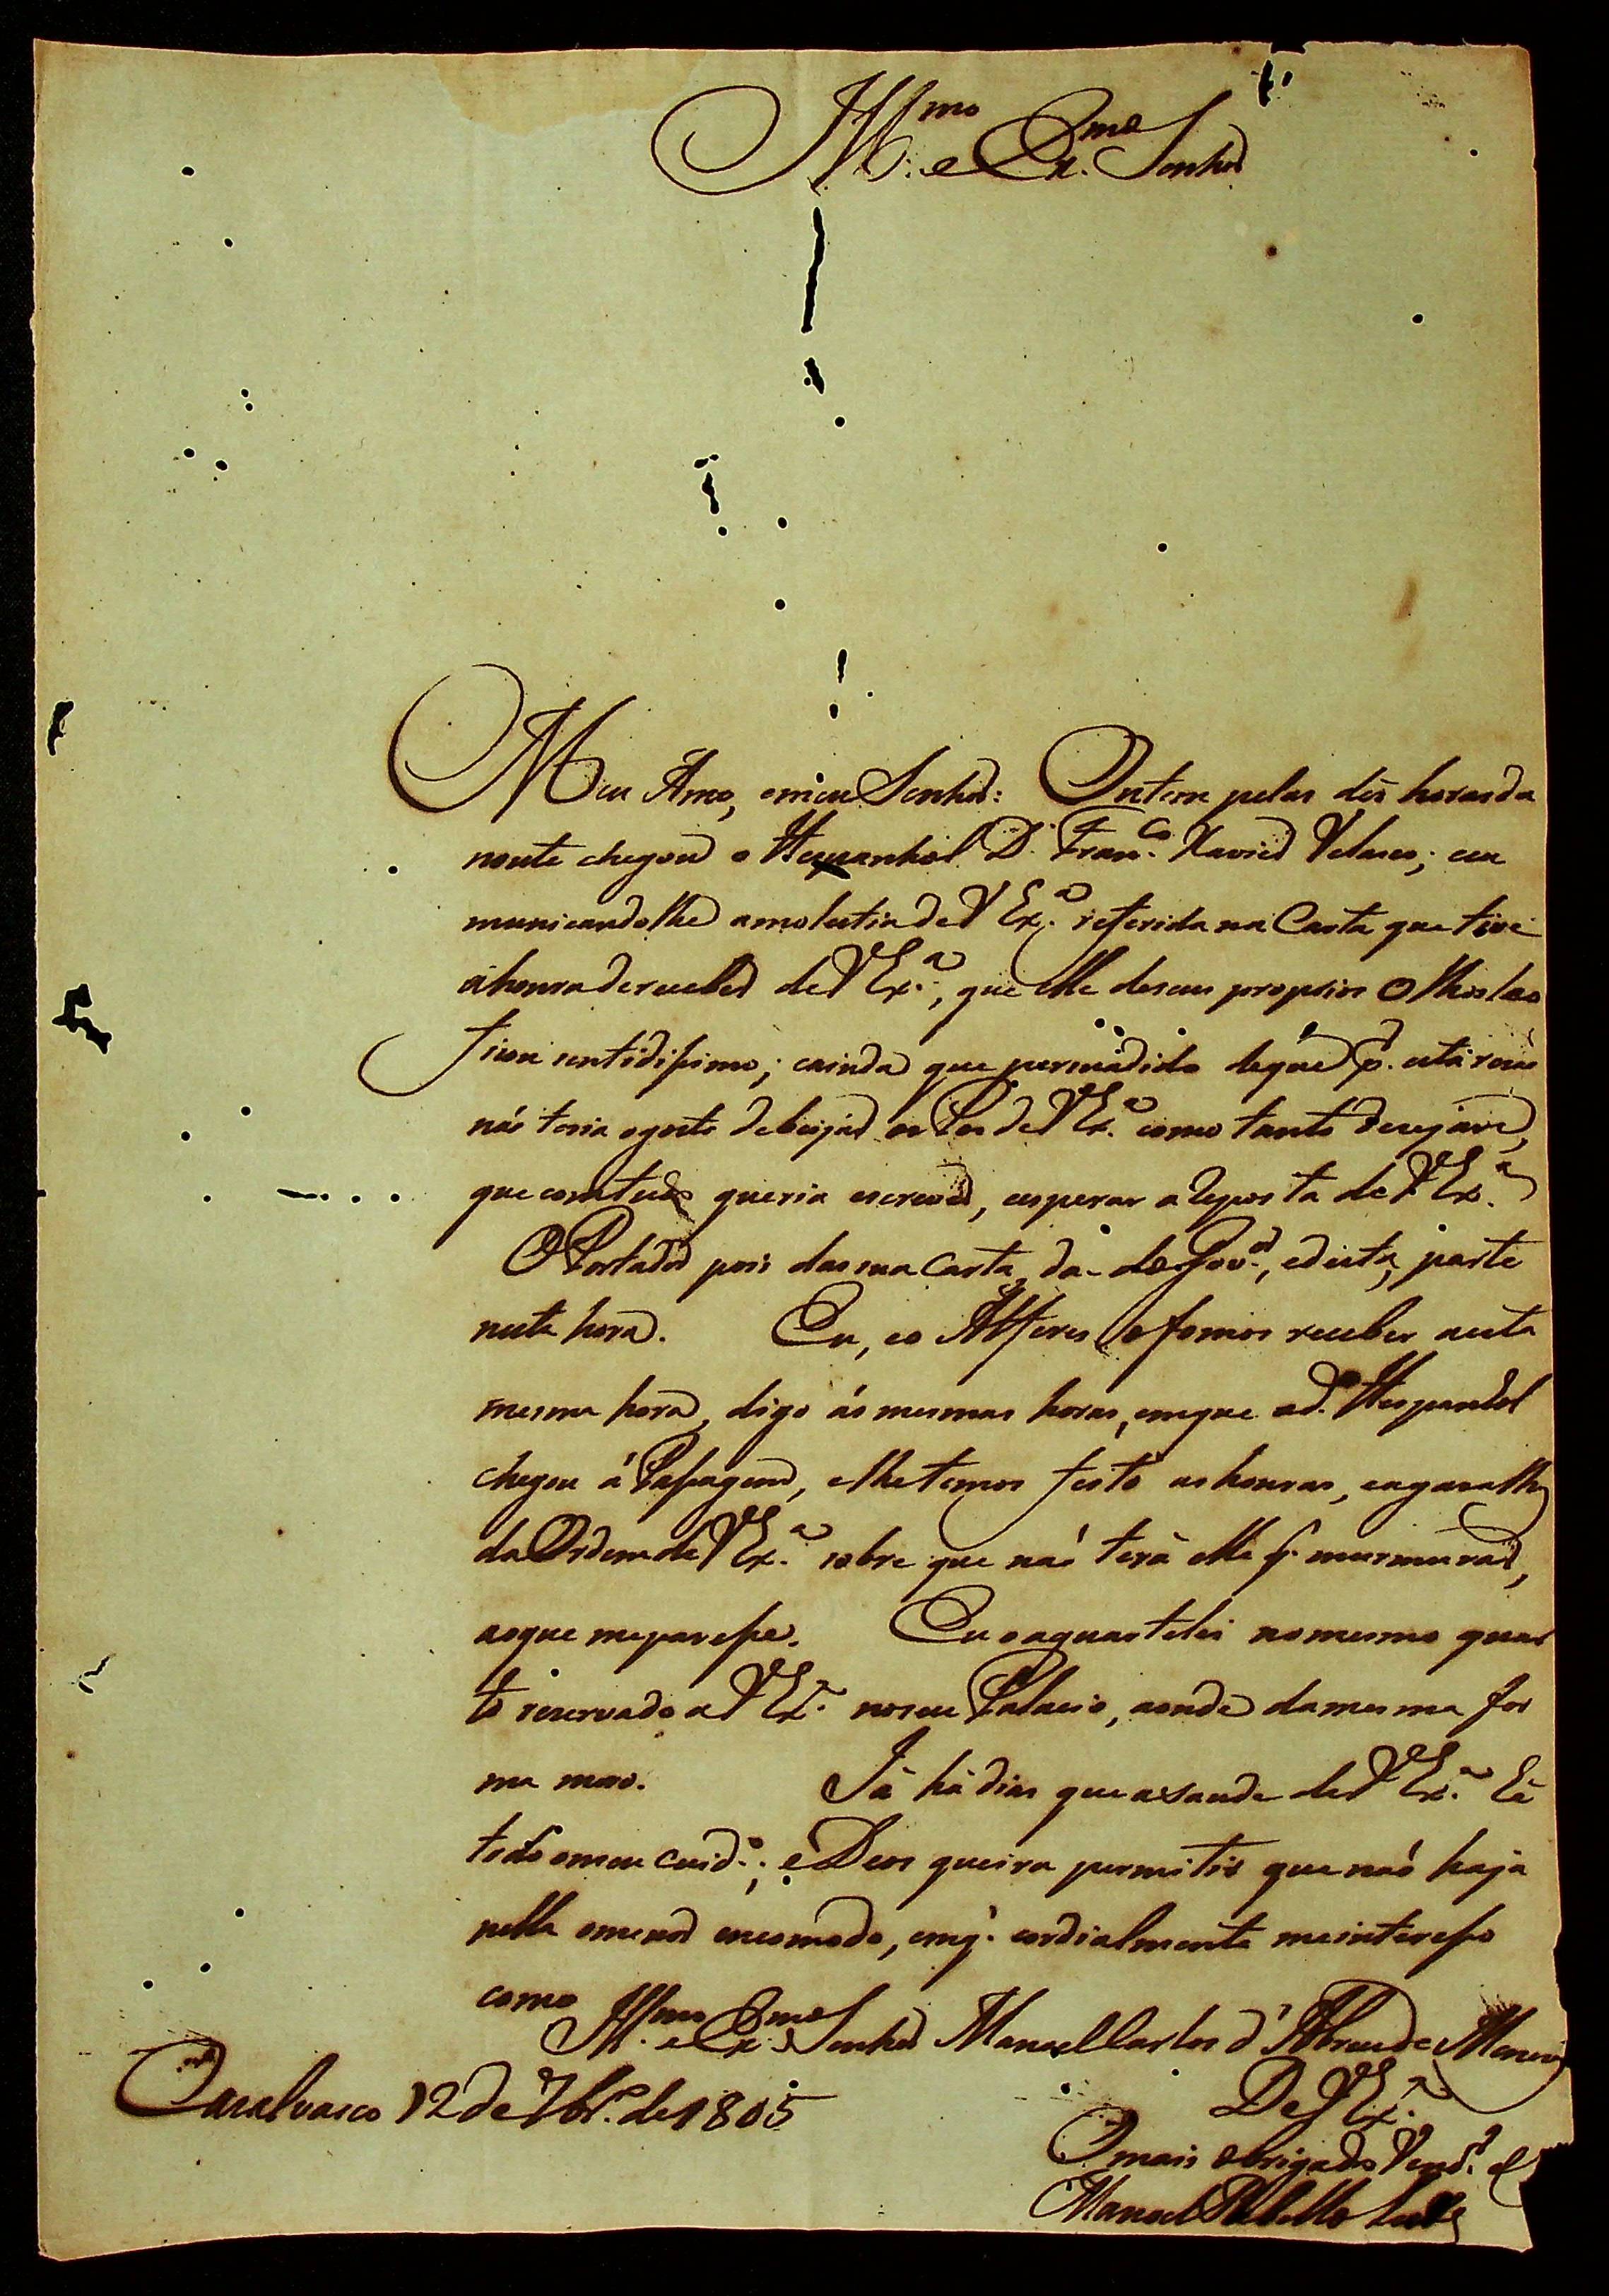 Ill.mo e Ex.mo Senhor
Meu Amo, e meu Senhor: Ontem pelas dés horas da
noute chegou o Hespanhol D. Fran.co Xavier Velasco; cu
municandolhe a molestia de V Ex.a referida na Carta que tive
a honra de receber de V Ex.a, que elle de seus proprios Olhos leo
ficou sentidissimo; e ainda que persuadido de que p.r esta
não teria o gosto de beijar os Pes de V Ex.a como tanto desejava,
que com tudo queria escrever, e esperar a reposta de V Ex.a
O Portador pois da sua Carta, da do Gov.or, e desta, parte
nesta hora. Eu, e o Alferes o fomos receber nesta
mesma hora, digo ás mesmas horas, em que o d.o Hespanhol
chegou á Passagem, e lhe temos feito as honras, e agasalho
da Ordem de V Ex.a sobre que não terá elle q. murmurar,
ao que me paresse. Eu o aquartelei no mesmo quar
to reservado a V Ex.a no seu Palacio, aonde da mesma for
ma moro. Já há dias que a saude de V Ex.a hé
todo o meu cuid.o; e Deos queira permitir que não haja
nella o menor encomodo, em q. cordialmente me interesso
como
Ill.mo e Ex.mo Senhor Manoel Carlos d'Abreu de Menezes
De V Ex.a
Cazalvasco 12 de 7br.o de 1805
O mais obrigado Vener.or e
Manoel Rebello